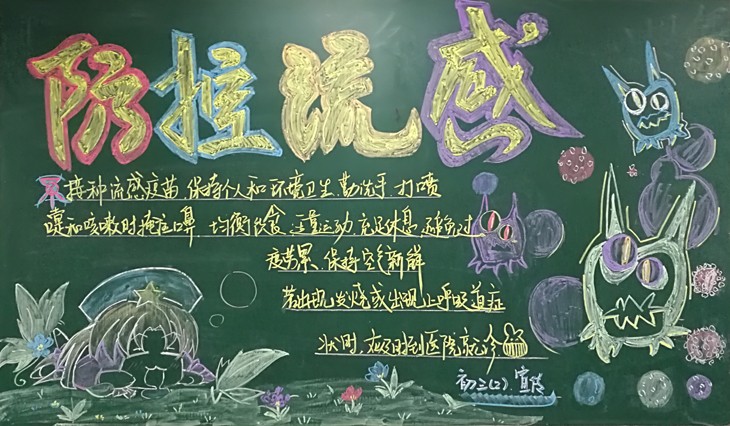 防控流感
接种流感疫苗 保持个人和环境卫生 勤洗手 打喷
嚏和咳嗽时掩住口鼻 均衡饮食 适量运动 充足休息 避免过
度劳累、保持空气新鲜
若出现发烧或出现上呼吸道症
状时,应及时到医院就诊
初三(2) 宣传